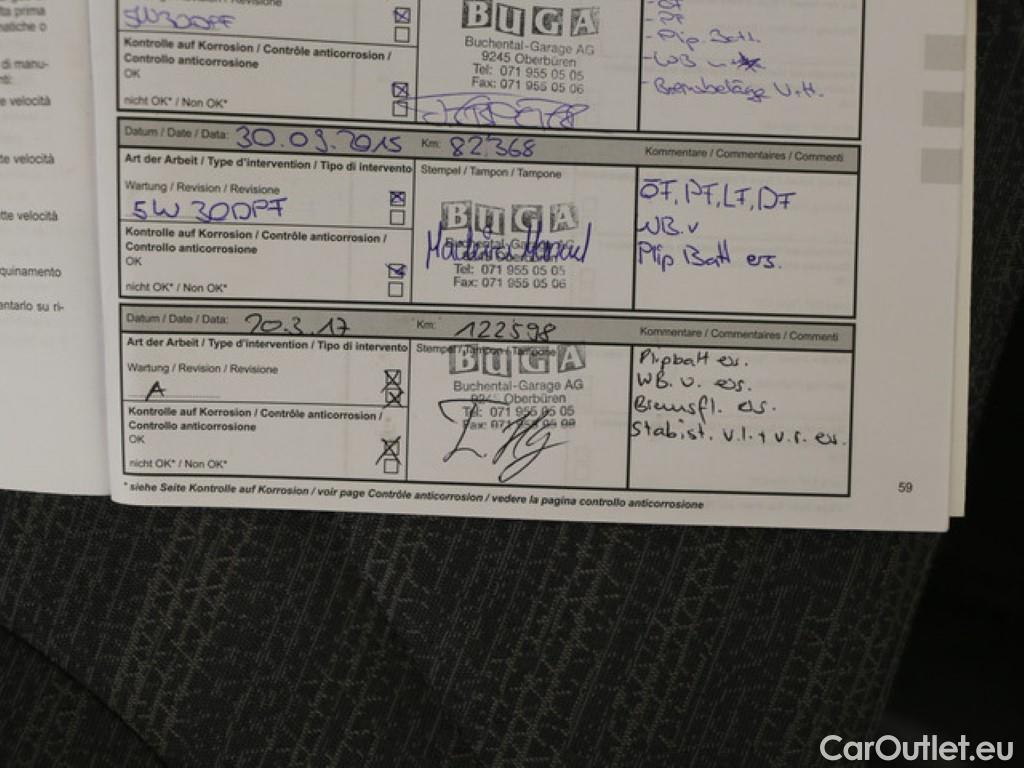 lta prima
matiche o
di manu-
enti:
e velocità
te velocità
tte velocità
quinamento
entario su ri-
5W30DPF
Kontrolle auf Korrosion / Contrôle anticorrosion /
Controllo anticorrosione
OK
nicht OK* / Non OK*
BUGA
Buchental-Garage AG
9245 Oberbüren
Tel: 071 955 05 05
Fax: 071 955 05 06
- PF
- Plip. Batt.
- WB
- Bremsbeläge V.+H.
Datum / Date / Data: 30.03.2015 Km: 82'368 Kommentare / Commentaires / Commenti
Art der Arbeit / Type d'intervention / Tipo di intervento
Wartung / Revision / Revisione
5W30DPF
Kontrolle auf Korrosion / Contrôle anticorrosion /
Controllo anticorrosione
OK
nicht OK* / Non OK*
Stempel / Tampon / Tampone
BUGA
Buchental-Garage AG
9245 Oberbüren
Tel: 071 955 05 05
Fax: 071 955 05 06
ÖF, PF, LF, DF
WB.v
Plip Batt ers.
Datum / Date / Data: 20.3.17 Km: 122598 Kommentare / Commentaires / Commenti
Art der Arbeit / Type d'intervention / Tipo di intervento
Wartung / Revision / Revisione
A
Kontrolle auf Korrosion / Contrôle anticorrosion /
Controllo anticorrosione
OK
nicht OK* / Non OK*
Stempel / Tampon / Tampone
BUGA
Buchental-Garage AG
9245 Oberbüren
Tel: 071 955 05 05
Fax: 071 955
Plipbatt ers.
WB. v. ers.
Bremsfl. ers.
Stabist. v.l. + v.r. ers.
* siehe Seite Kontrolle auf Korrosion / voir page Contrôle anticorrosion / vedere la pagina controllo anticorrosione
59
CarOutlet.eu